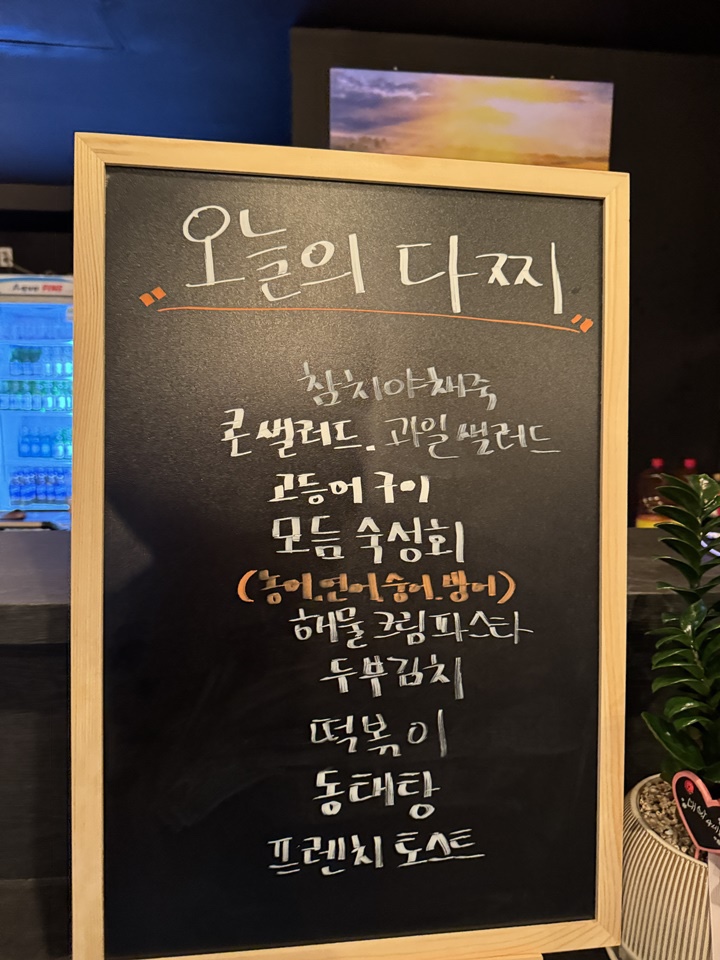 "오늘의 다찌"
참치야채죽
콘샐러드. 과일샐러드
고등어구이
모듬 숙성회
(농어.연어.숭어.방어)
해물크림파스타
두부김치
떡볶이
동태탕
프렌치 토스트